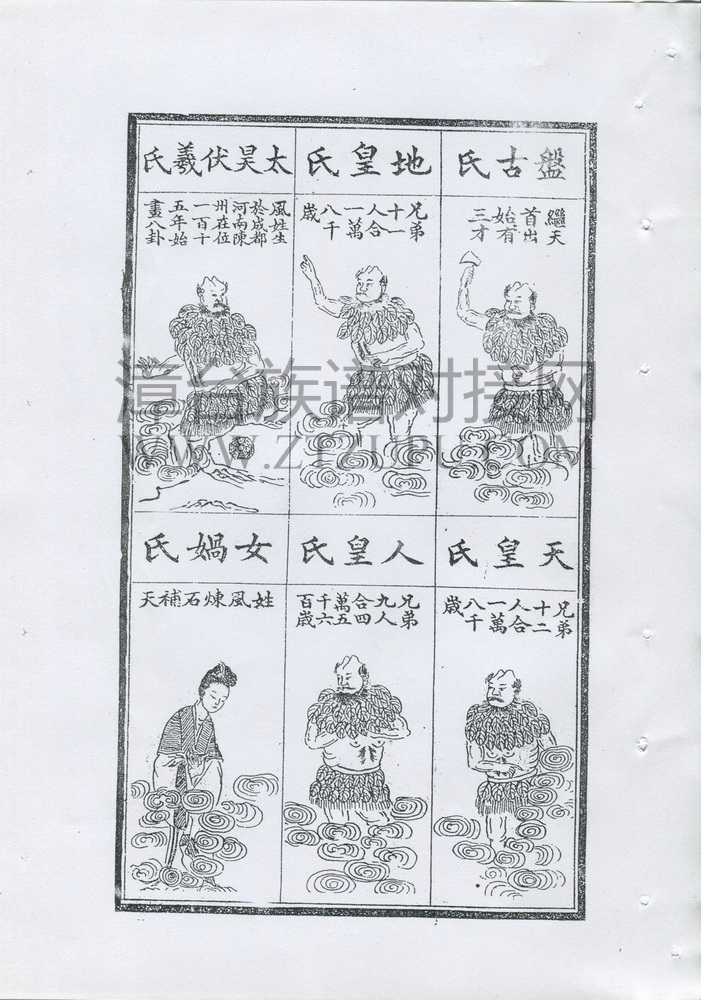 盤古氏
繼天
首出
始有
三才
地皇氏
兄弟
十一
人合
一萬
八千
歲
太昊伏羲氏
風姓生
於成都
河南陳
州在位
一百十
五年始
畫八卦
天皇氏
兄弟
十二
人合
一萬
八千
歲
人皇氏
兄弟
九人
合四
萬五
千六
百歲
女媧氏
姓風煉石補天
漳台族谱对接网
WWW.ZTZUPU.COM